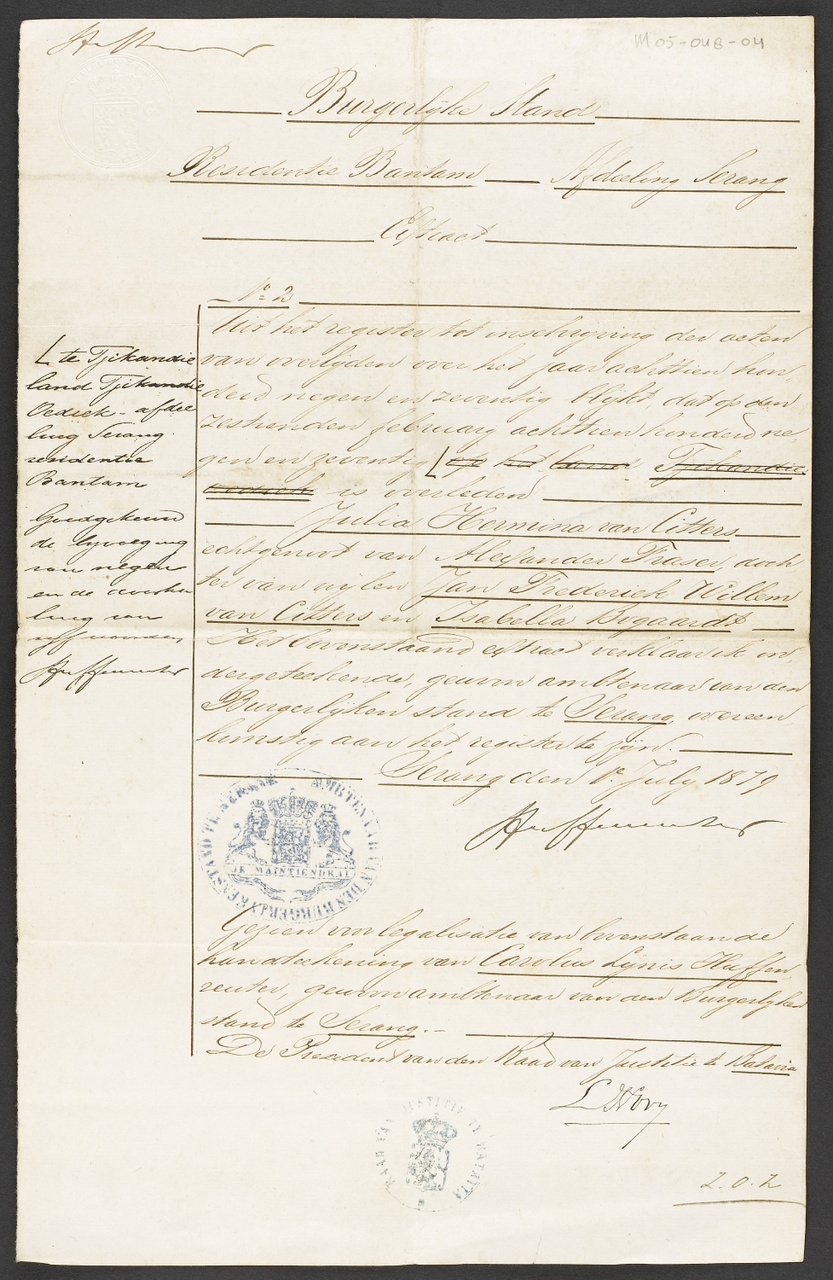 M05-04B-04
Burgerlijke Stand
Residentie Bantam — Afdeeling Serang
Extract
No. 2
Uit het register tot inschrijving der acten
van overlijden over het jaar achttien hon-
derd negen en zeventig blijkt, dat op den
zestienden februarij achttien honderd ne-
gen en zeventig op het land Tjikandie
oedick is overleden
Julia Hermina van Citters
echtgenoot van Alexander Fraser, doch-
ter van wijlen Jan Frederick Willem
van Citters en Isabella Bogaardt
Het bovenstaand extract verklaar ik on-
dergeteekende, gewoon ambtenaar van den
Burgerlijken stand te Serang, overeen
komstig aan het register te zijn.
Serang den 1e July 1879
te Tjikandie
land Tjikandie
Oedick - afdee
ling Serang
residentie
Bantam
Goedgekeurd
de byvoeging
van negen
en de doorha
ling van
vijf woorden
AMBTENAAR VAN DEN BURGERLYKEN STAND TE SERANG
JE MAINTIENDRAI
Gezien voor legalisatie van bovenstaande
handteekening van Carolus Lijnis Huffen
reuter, gewoon ambtenaar van den Burgerlijken
stand te Serang.
De President van den Raad van Justitie te Batavia
RAAD VAN JUSTITIE TE BATAVIA
Z.O.Z